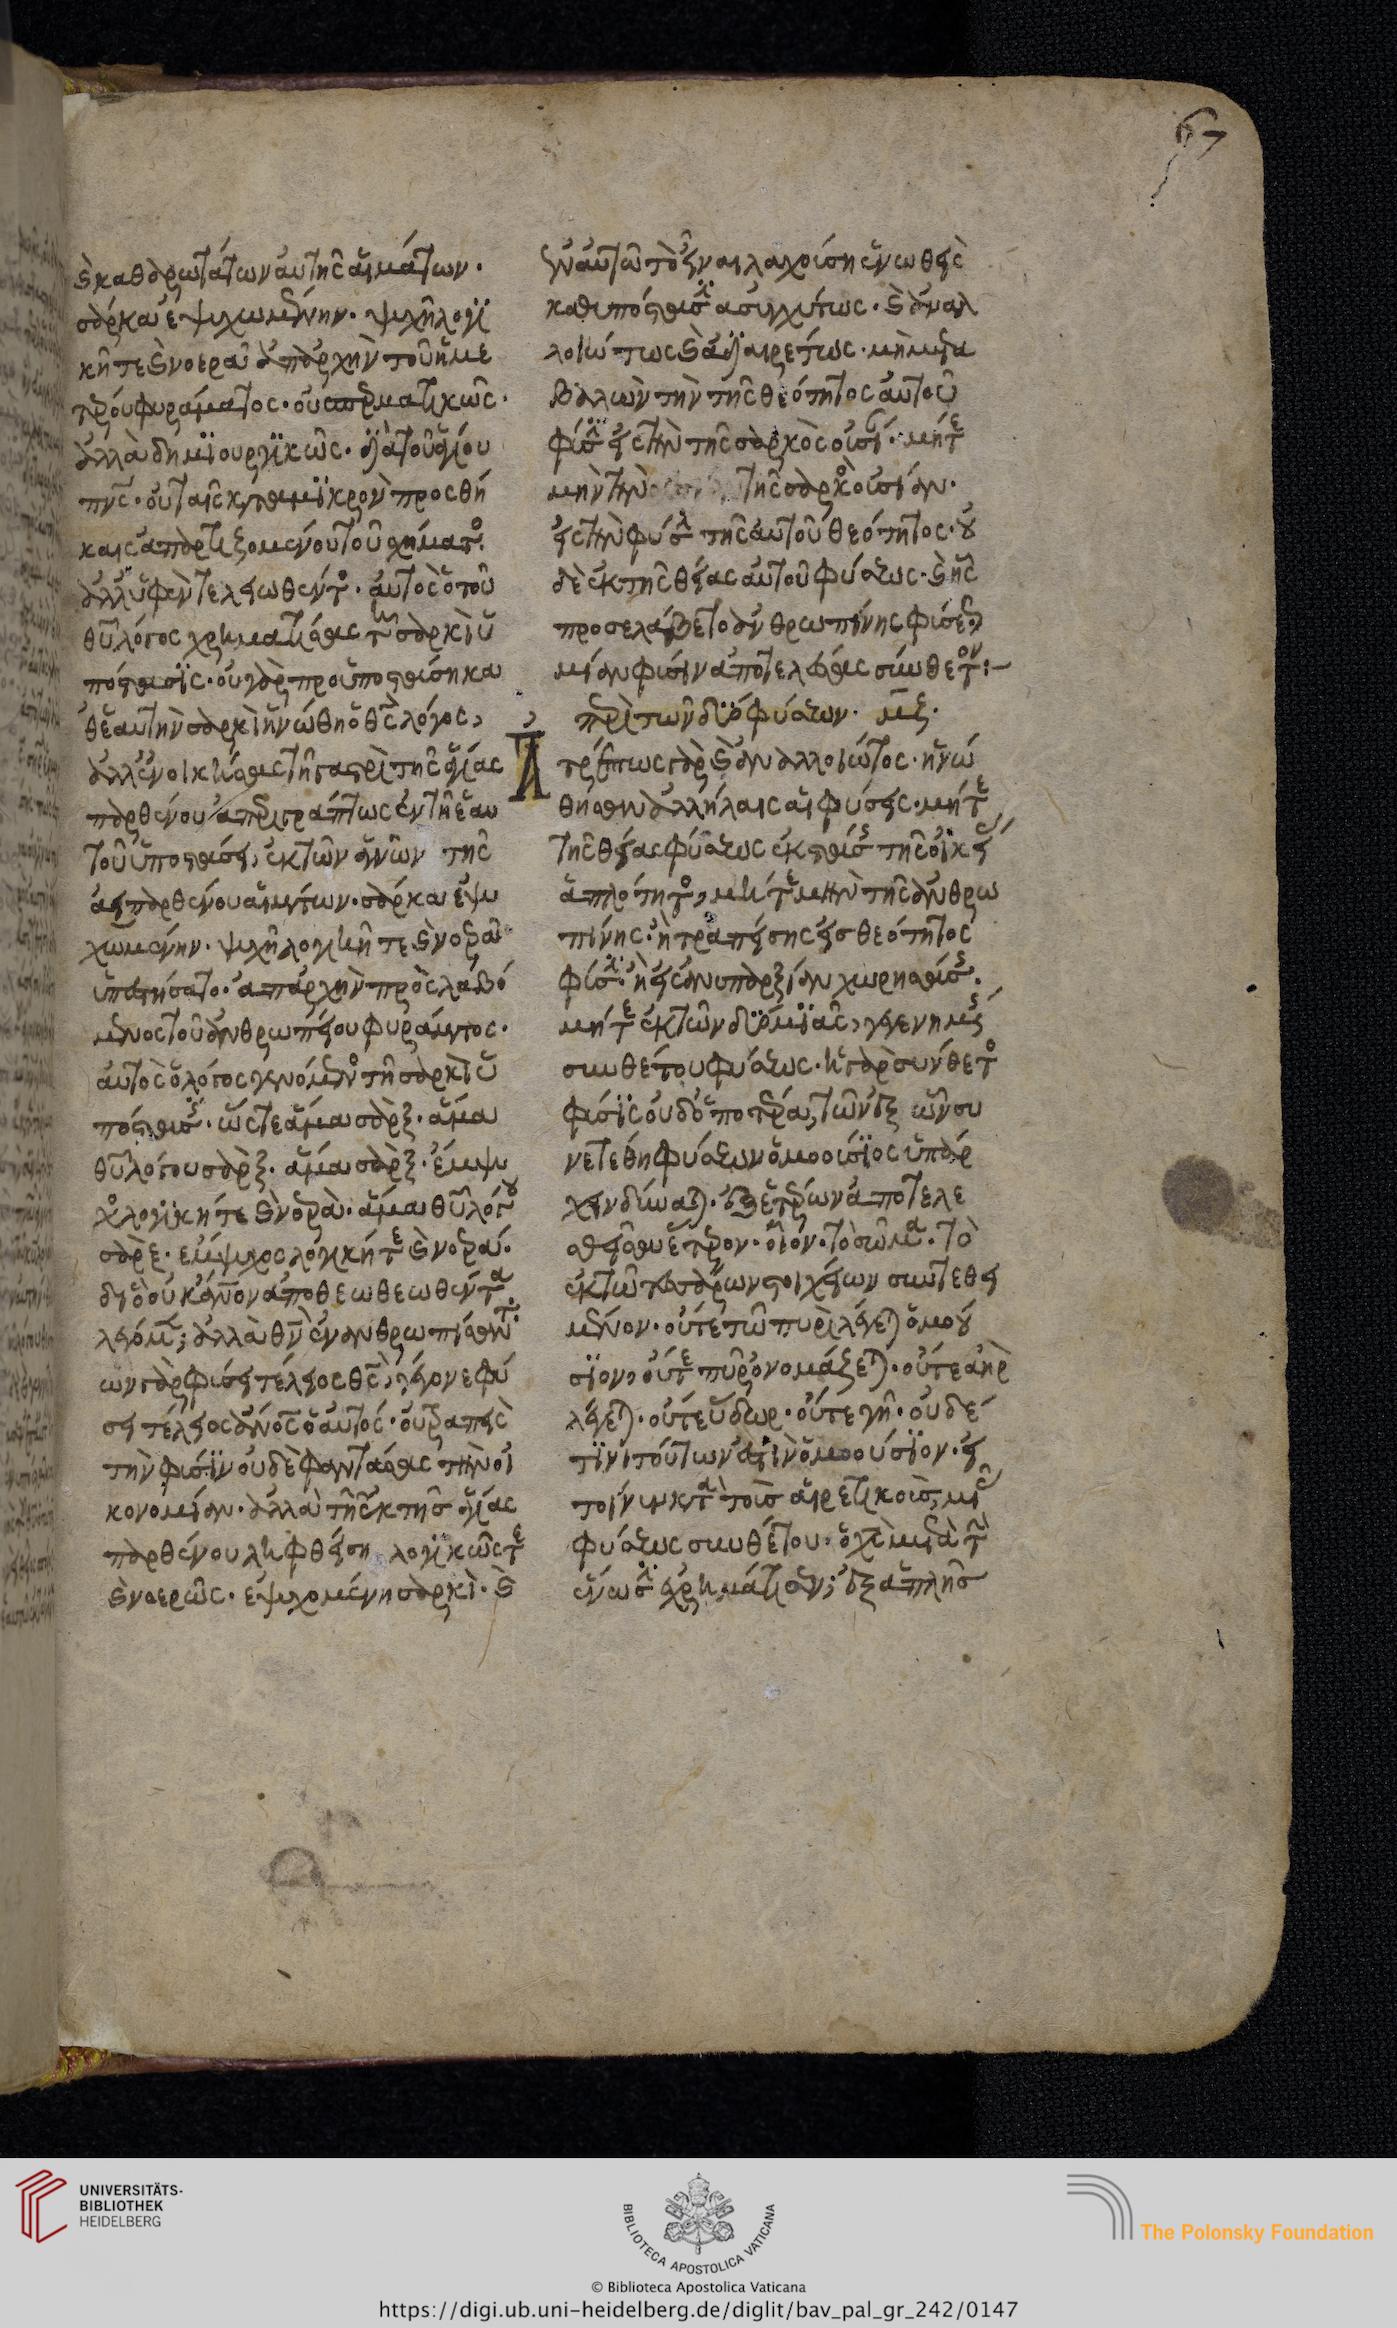 67
καὶ καθαρωτάτων αὐτῆς αἱμάτων·
σάρκα ἐψυχωμένην· ψυχῇ λογϊ
κῇ τε καὶ νοερᾷ ἀπαρχὴν τοῦ ἡμε
τέρου φυράματος· οὐ σπερματικῶς·
ἀλλὰ δημϊουργϊκῶς· διὰ τοῦ ἁγίου
πνς· οὐ ταῖς κατα μϊκρὸν προσθή
καις ἀπαρτιζομένου τοῦ σχήματος
ἀλλ' ὑφὲν τελειωθέντος· αὐτὸς ὁ τοῦ
θυ λόγος χρηματίσας τῇ σαρκὶ ὑ
πόστασϊς· οὐ γὰρ προϋποστάση κα
θ' ἑαυτὴν σαρκὶ ἡνώθη ὁ θς λόγος,
ἀλλ' ἐνοικήσας τῇ γαστρὶ τῆς ἁγίας
παρθένου ἀπεριγράπτως ἐν τῇ ἑαυ
τοῦ ὑποστάσει, ἐκ τῶν ἁγνῶν τῆς
ἀειπαρθένου αἱμάτων· σάρκα ἐψυ
χωμένην· ψυχῇ λογικῇ τε καὶ νοερᾷ
ὑπεστήσατο· ἀπαρχὴν προσλαβό
μενος τοῦ ἀνθρωπείου φυράματος·
αὐτὸς ὁ λόγος γενόμενος τῇ σαρκὶ ὑ
πόστασις· ὥστε ἅμα σάρξ· ἅμα
θυ λόγου σάρξ· ἅμα σάρξ· ἔμψυ
χος λογϊκή τε καὶ νοερὰ· ἅμα θυ λόγου
σάρξ· ἔμψυχος λογικήτε καὶ νοερά·
διὸ οὐκ ἄνον ἀποθεωθεωθέντα
λέγομεν; ἀλλὰ θν ἐνανθρωπήσαντα·
ὢν γὰρ φύσει τέλειος θς, γέγονε φύ
σει τέλειος ἄνος ὁ αὐτός· οὐ τραπεὶς
τὴν φύσϊν οὐδὲ φαντάσας τὴν οἰ
κονομίαν· ἀλλὰ τῇ ἐκ τῆς ἁγίας
παρθένου ληφθείση λογϊκῶς τε
καὶ νοερῶς· ἐψυχομένη σαρκὶ· καὶ
ἐν αὐτῶ τὸ εἶναι λαχούση ἑνωθεὶς
καθυπόστασιν ἀσυγχύτως· καὶ ἀναλ
λοιώτως καὶ ἀδιαιρέτως· μὴ μετα
βαλὼν τὴν τῆς θεότητος αὐτοῦ
φύσιν εἰς τὴν τῆς σαρκὸς οὐσίαν· μήτε
μὴν τὴν τῆς σαρκὸς οὐσίαν·
εἰς τὴν φύσιν τῆς αὐτοῦ θεότητος· οὐ
δὲ ἐκ τῆς θείας αὐτοῦ φύσεως· καὶ ἧς
προσελάβετο ἀνθρωπίνης φύσεως
μίαν φύσιν ἀποτελέσας σύνθετον:
περὶ τῶν δύο φύσεων· μζ·
Ἀτρέπτως γὰρ καὶ ἀναλλοιώτος· ἡνώ
θησαν ἀλλήλαις αἱ φύσεις· μήτε
τῆς θείας φύσεως ἐκστάσης τῆς οἰκείας
ἁπλότητος, μήτε μὴν τῆς ἀνθρω
πίνης· ἢ τραπείσης εἰς θεότητος
φύσιν· ἢ εἰς ἀνυπαρξίαν χωρησάσης·
μήτε ἐκ τῶν δύο μϊᾶς, γεγενημένης
συνθέτου φύσεως· ἡ γὰρ σύνθετος
φύσϊς οὐδοποτέρα, τῶν ἐξ ὧν συ
νετέθη φύσεων ὁμοούσϊος ὑπάρ
χειν δύναται· ἐξ ἑτέρων ἀποτελε
σθεῖσα ἕτερον· οἷον· τὸ σῶμα· τὸ
ἐκ τῶν τεσσάρων στοιχείων συντεθει
μένον· οὔτε τῶ πυρὶ λέγεται ὁμοού
σϊον, οὔτε πῦρ ὀνομάζεται· οὔτε ἀὴρ
λέγεται· οὔτε ὕδωρ· οὔτε γῆ· οὐδέ
τϊνι τούτων ἐστὶν ὁμοούσϊον· εἰ
τοίνυν κατὰ τοῖς αἱρετικοῖς, μιᾶς
φύσεως συνθέτου· ὁ χς μετὰ τὴν
ἕνωσιν ἐχρημάτισεν; ἐξ ἁπλῆς
UNIVERSITÄTS-
BIBLIOTHEK
HEIDELBERG
BIBLIOTECA APOSTOLICA VATICANA
© Biblioteca Apostolica Vaticana
The Polonsky Foundation
https://digi.ub.uni-heidelberg.de/diglit/bav_pal_gr_242/0147